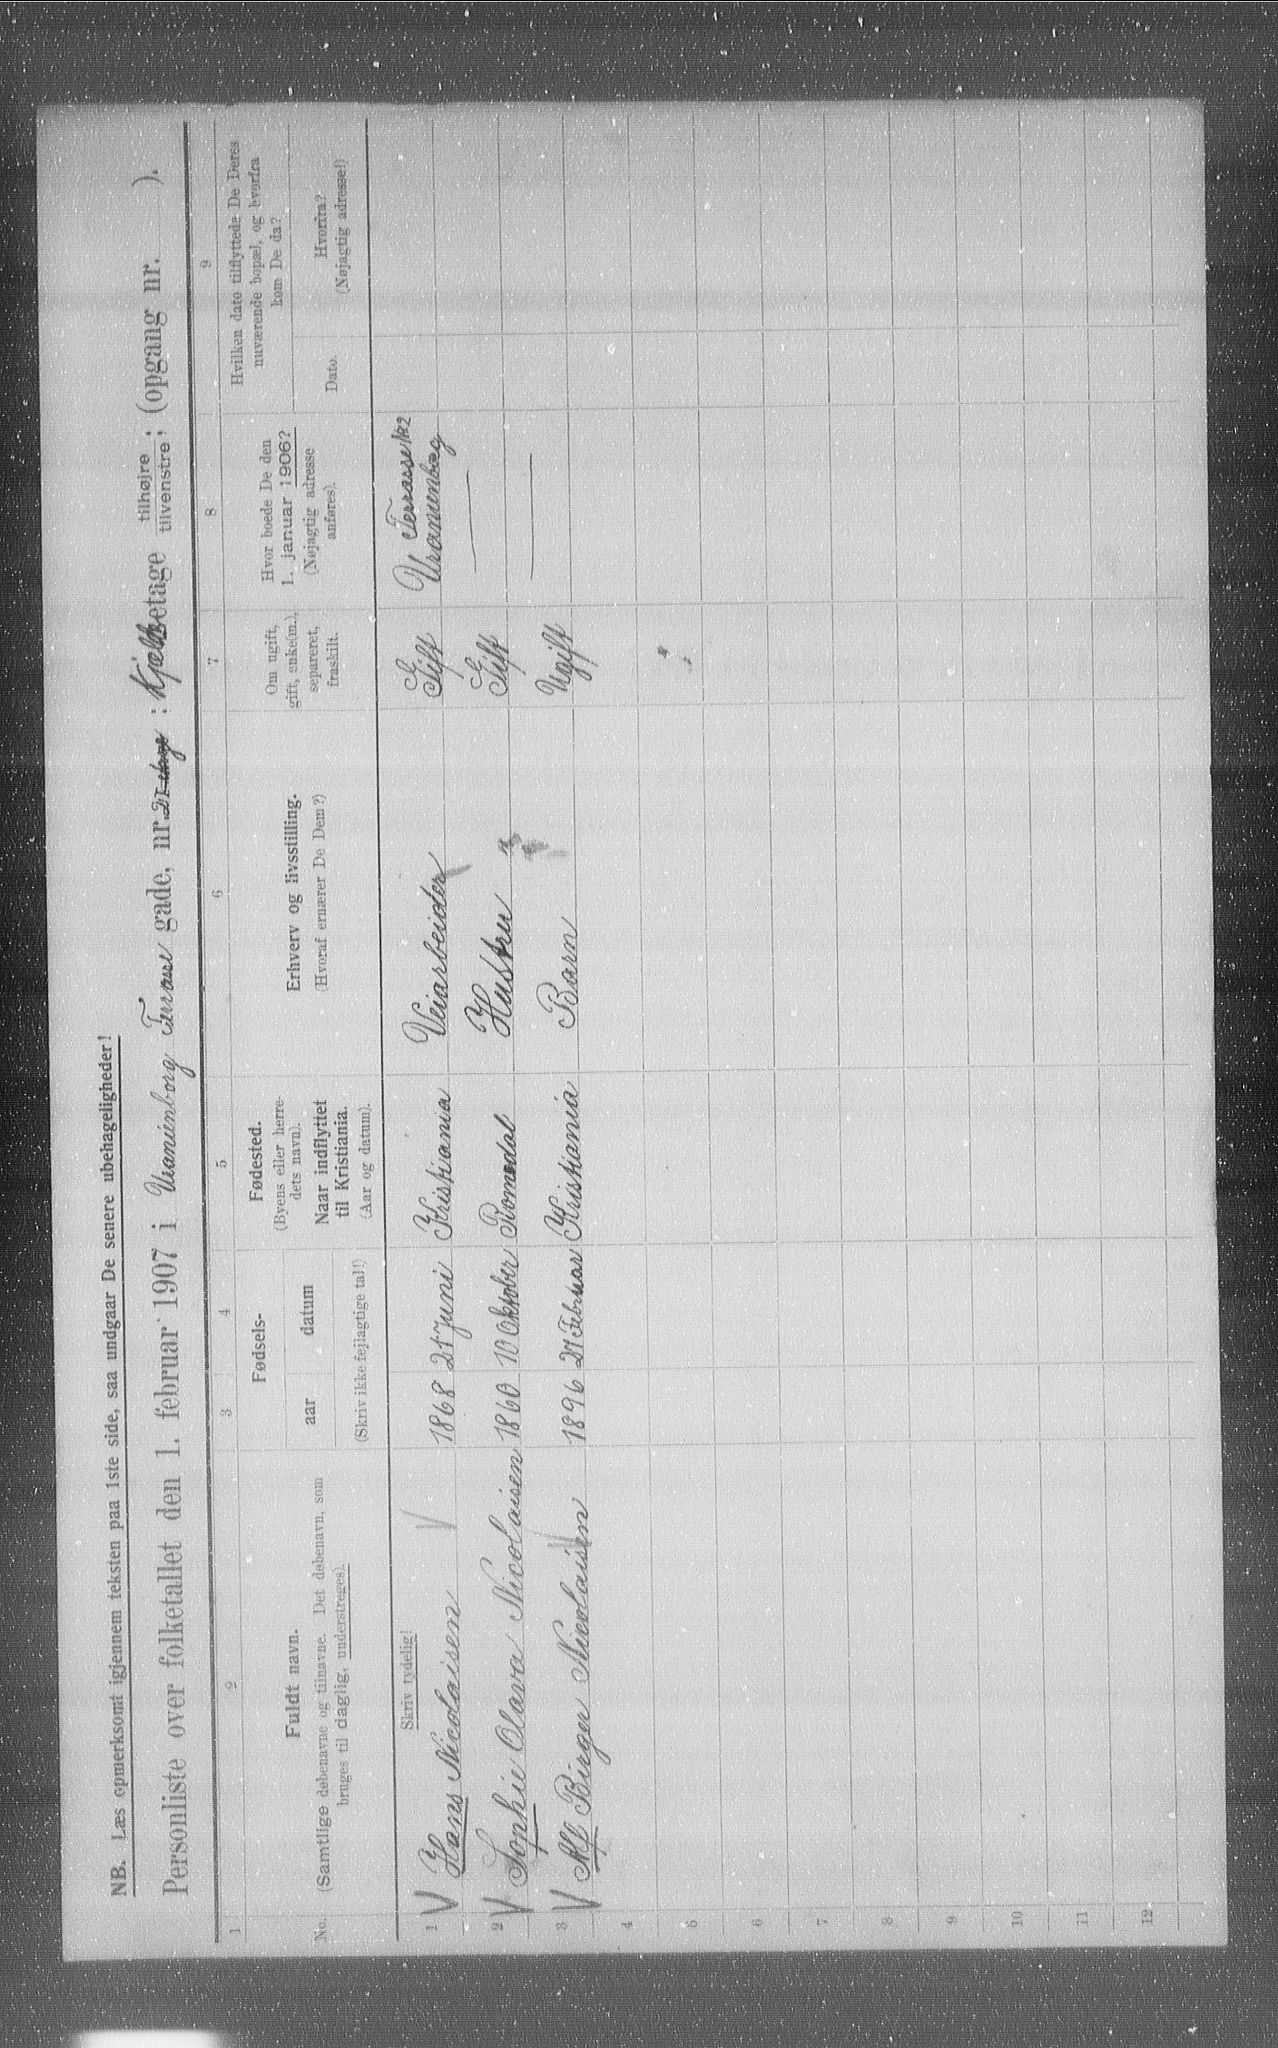 NB. Læs opmerksomt igjennem teksten paa 1ste side, saa undgaar De senere ubehageligheder!
Personliste over folketallet den 1. februar 1907 i Uranienborg Terrasse gade, nr. : Kjelderetage tilhøjre tilvenstre ; (opgang nr. ).
1 2 3 4 5 6 7 8 9
No.
Fuldt navn.
(Samtlige døbenavne og tilnavne. Det døbenavn, som
bruges til daglig, understreges).
Fødsels-
aar datum
(Skriv ikke fejlagtige tal!)
Fødested.
(Byens eller herre-
dets navn).
Naar indflyttet
til Kristiania.
(Aar og datum).
Erhverv og livsstilling.
(Hvoraf ernærer De Dem?)
Om ugift,
gift, enke(m.),
separeret,
fraskilt.
Hvor boede De den
1. januar 1906?
(Nøjagtig adresse
anføres).
Hvilken dato tilflyttede De Deres
nuværende bopæl, og hvorfra
kom De da?
Dato.
Hvorfra?
(Nøjagtig adresse!)
Skriv tydelig!
1 V Hans Nicolaisen V 1868 21 Juni Kristiania Veiarbeider Gift Terrasse Uranienborg
2 V Sophie Olava Nicolaisen 1860 10 Oktober Romedal Hustru Gift —
3 V Alf Birger Nicolaisen 1896 27 Februar Kristiania Barn Ugift —
4
5
6
7
8
9
10
11
12